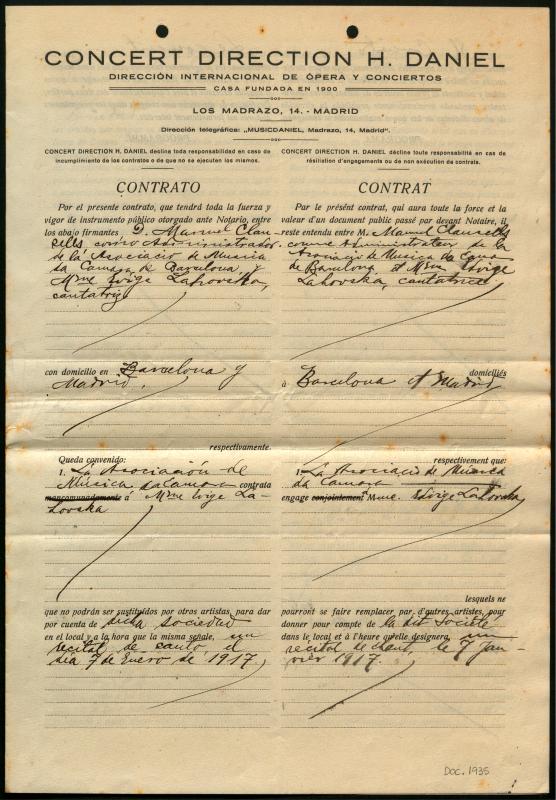 CONCERT DIRECTION H. DANIEL
DIRECCIÓN INTERNACIONAL DE ÓPERA Y CONCIERTOS
CASA FUNDADA EN 1900
LOS MADRAZO, 14. - MADRID
Dirección telegráfica: „MUSICDANIEL, Madrazo, 14, Madrid".
CONCERT DIRECTION H. DANIEL declina toda responsabilidad en caso de
incumplimiento de los contratos o de que no se ejecuten los mismos.
CONTRATO
Por el presente contrato, que tendrá toda la fuerza y
vigor de instrumento público otorgado ante Notario, entre
los abajo firmantes D. Manuel Clau-
sells como Administrador
de la Asociacio de Musica
da Camara de Barcelona, y
Mme Lahovska,
cantatriz
con domicilio en Barcelona y
Madrid.
respectivamente.
Queda convenido:
1. La Asociación de
Musica da Camara contrata
mancomunadamente á Mme La-
hovska
que no podrán ser sustituídos por otros artistas, para dar
por cuenta de dicha sociedad
en el local y a la hora que la misma señale, un
recital de canto, el
día 7 de Enero de 1917.
CONCERT DIRECTION H. DANIEL décline toute responsabilité en cas de
résiliation d'engagements ou de non exécution de contrats.
CONTRAT
Par le présent contrat, qui aura toute la force et la
valeur d'un document public passé par devant Notaire, il
reste entendu entre M. Manuel Clausells
comme Administrateur de la
Asociació de Musica da Camara
de Barcelona et Mme
Lahovska, cantatrice
domiciliés
à Barcelona et Madrid
respectivement que:
1. La Asociació de Musica
da Camara
engage conjointement Mme. Lahovska
lesquels ne
pourront se faire remplacer, par d'autres artistes, pour
donner pour compte de la dit Societé
dans le local et à l'heure qu'elle designera, un
recital de chant, le 7 Jan-
vier 1917.
DOC. 1935